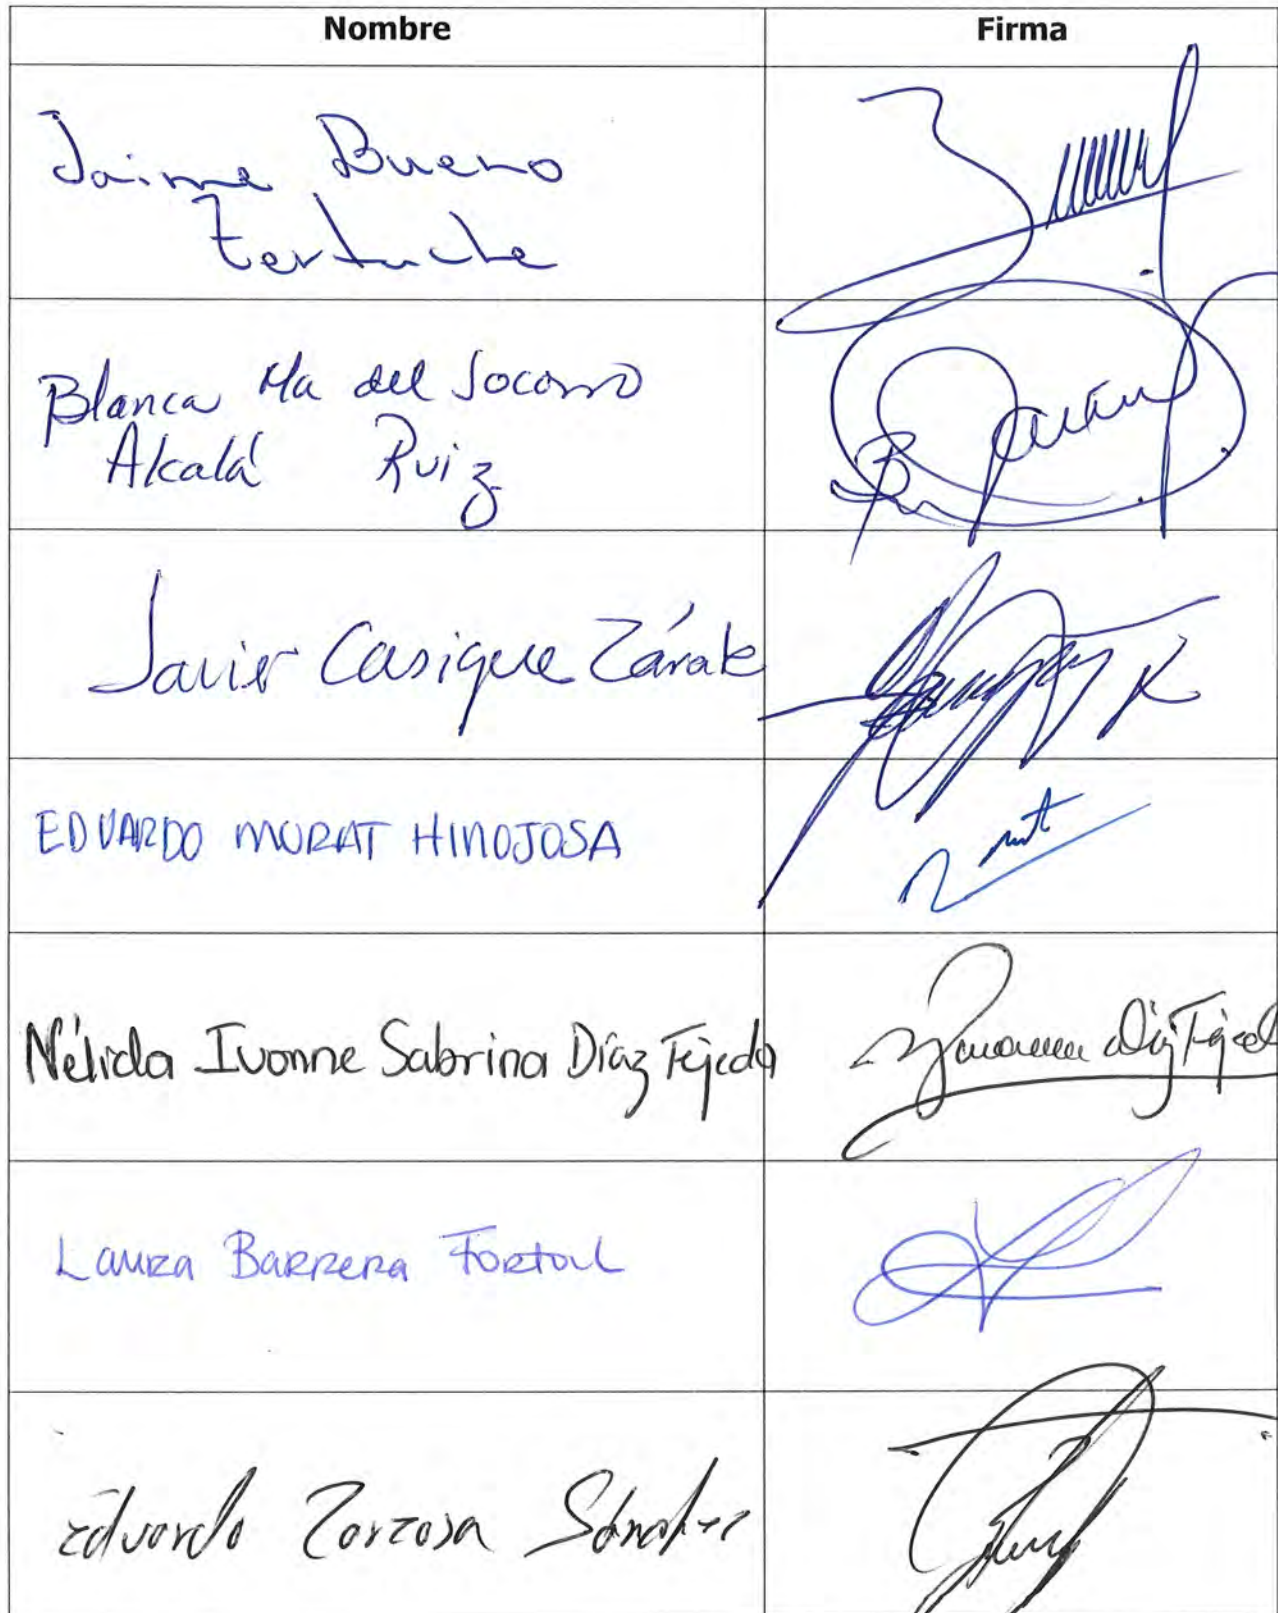 Nombre Firma
Jaime Bueno
Zertuche
Blanca Ma del Socorro
Alcalá Ruiz
Javier Casique Zárate
EDUARDO MURAT HINOJOSA
Nélida Ivonne Sabrina Díaz Tejeda
Díaz Tejed
Laura Barrera Fortoul
Eduardo Zarzosa Sánchez